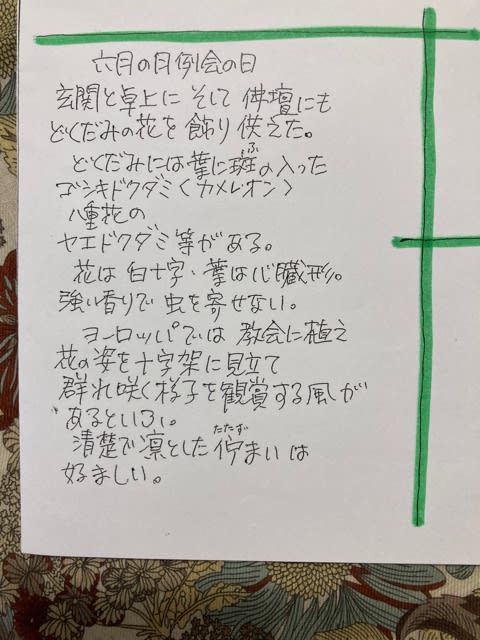 六月の月例会の日
玄関と卓上に そして 仏壇にも
どくだみの花を 飾り 供えた。
どくだみには葉に斑(ふ)の入った
ゴシキドクダミ〈カメレオン〉
八重花の
ヤエドクダミ等がある。
花は 白十字・葉は心臓形。
強い香りで 虫を寄せない。
ヨーロッパでは 教会に植え
花の姿を十字架に見立て
群れ咲く様子を観賞する風が
あるという。
清楚で凛とした佇(たたず)まいは
好ましい。